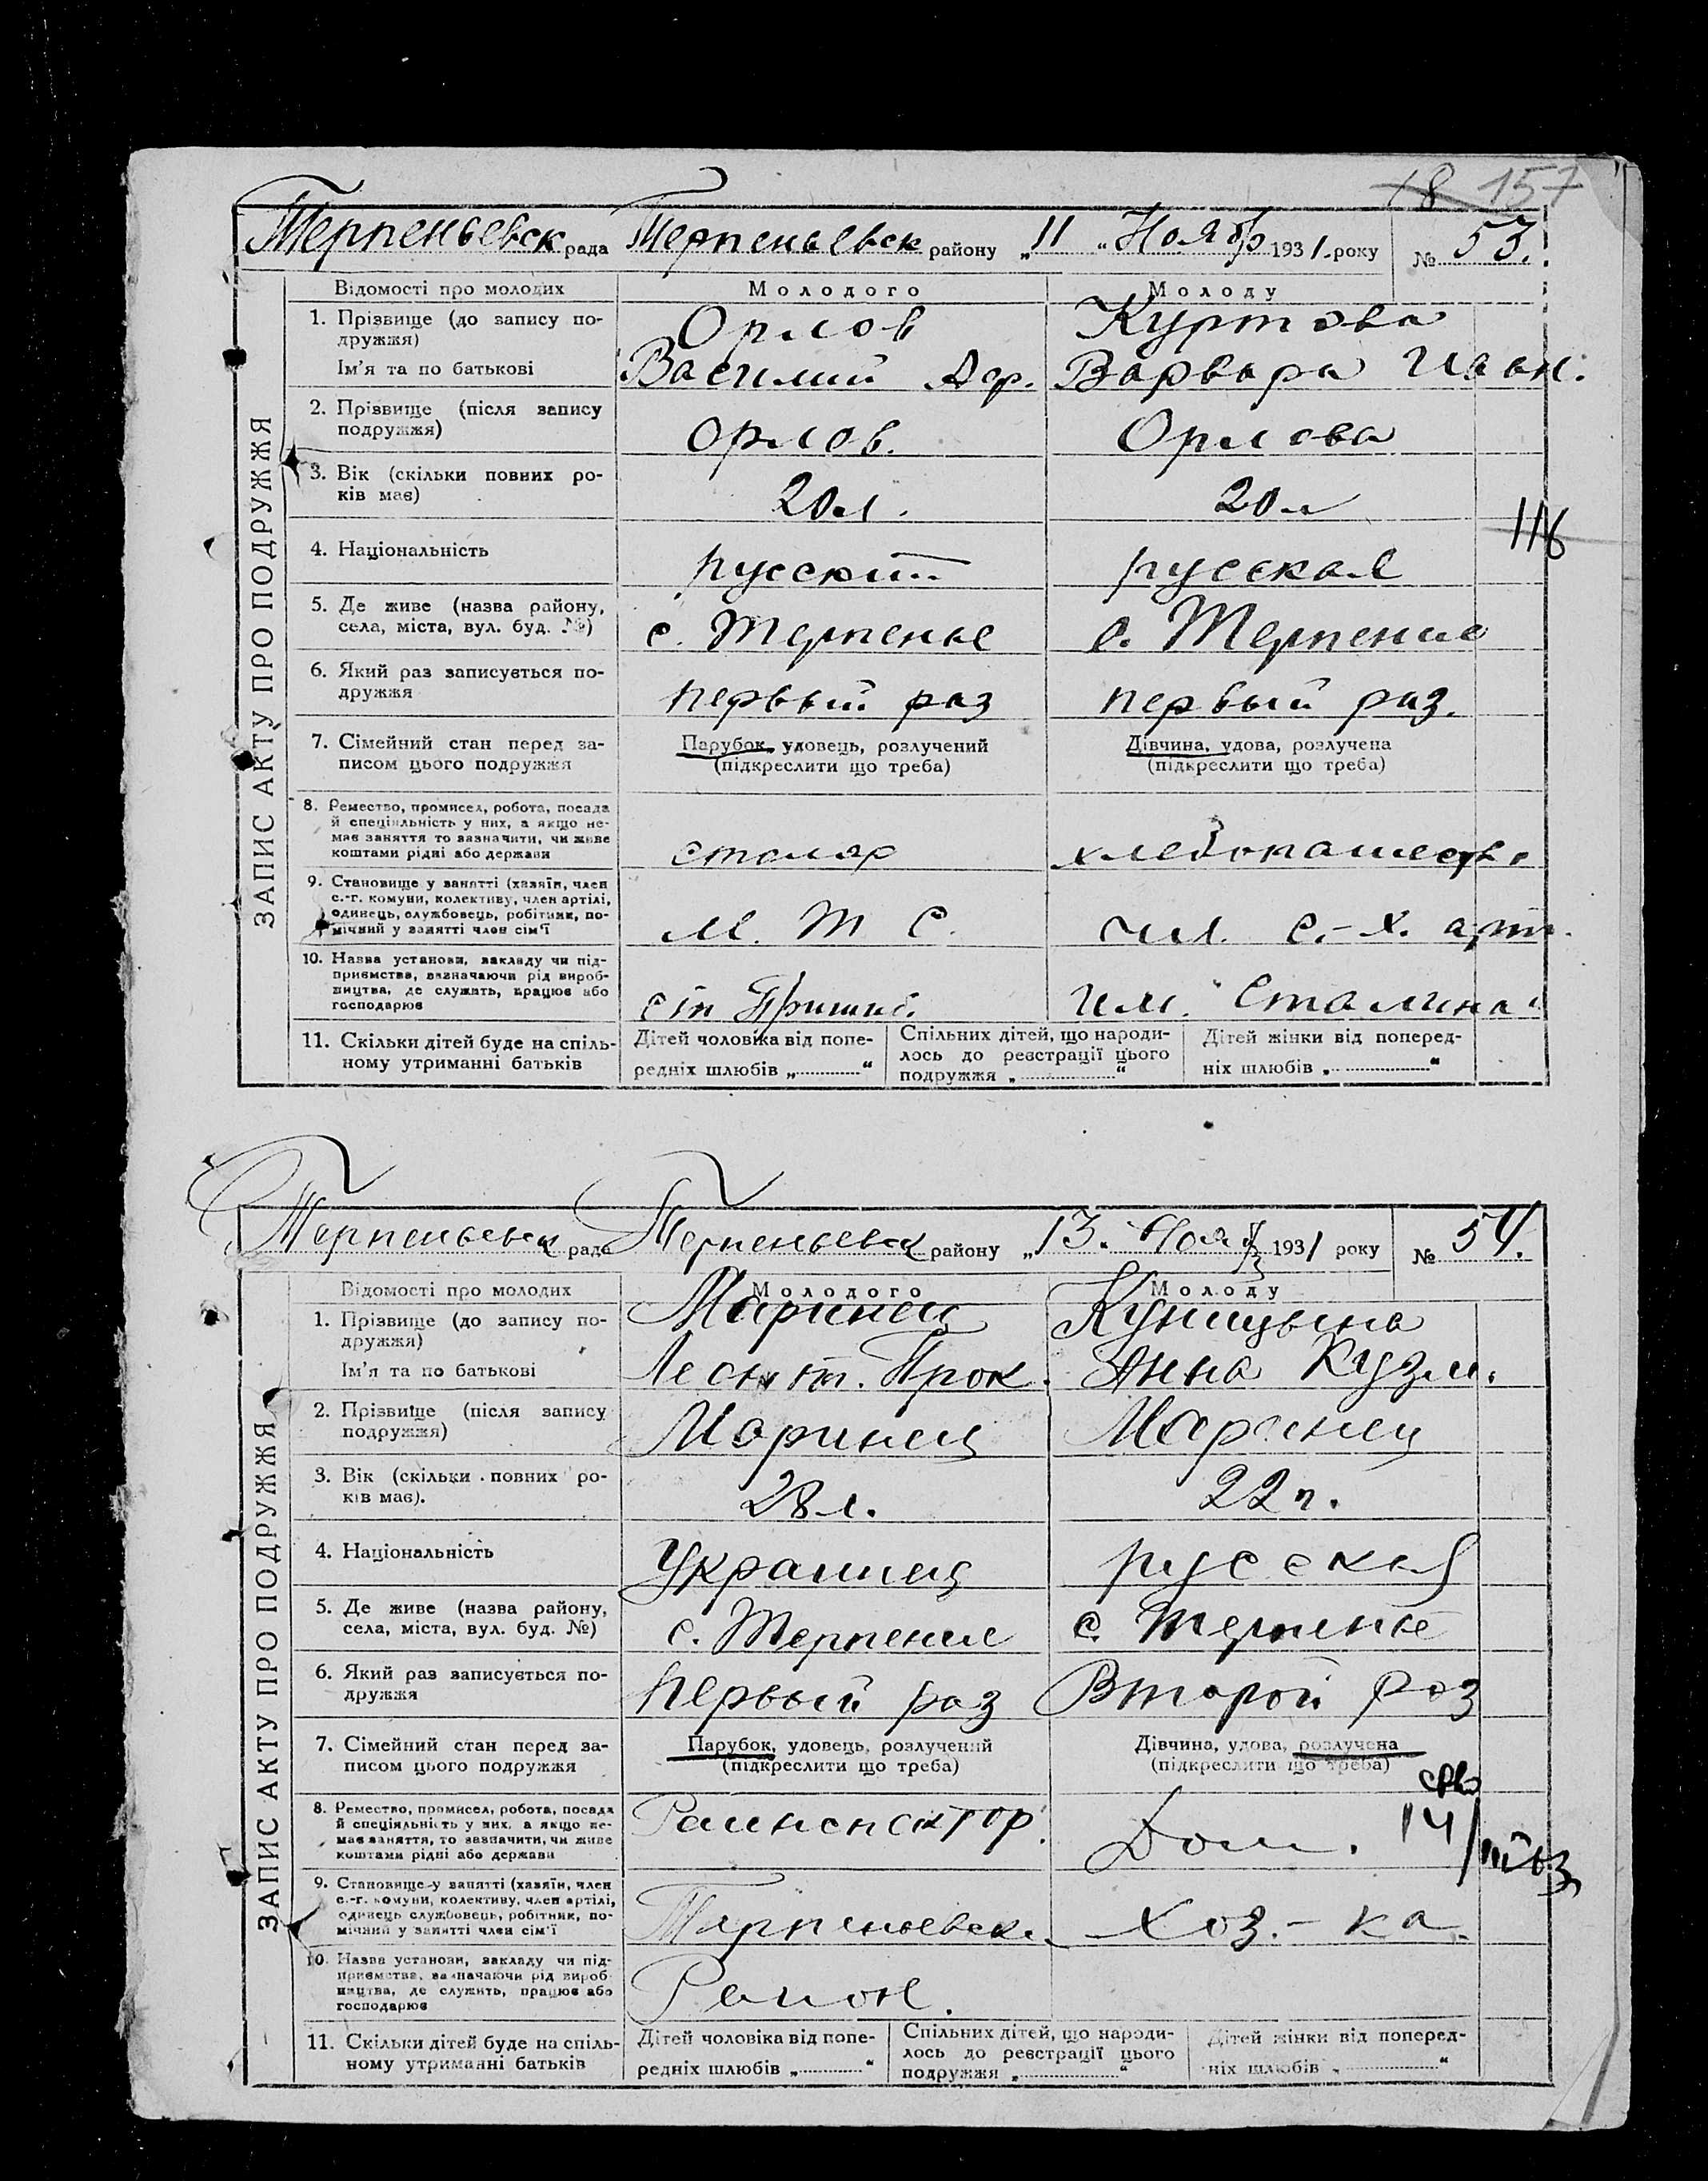 18 157
Терпеньевск рада Терпеньевск району „11“ Нояб 1931. року № 53.
ЗАПИС АКТУ ПРО ПОДРУЖЖЯ
Відомості про молодих Молодого Молоду
1. Прізвище (до запису по- Орлов Куртова
дружжя)
Ім'я та по батькові Василий Варвара Иван.
2. Прізвище (після запису
подружжя) Орлов. Орлова
3. Вік (скільки повних ро-
ків має) 20 л. 20 л
116
4. Національність русский русская
5. Де живе (назва району,
села, міста, вул. буд. №) с. Терпенье с. Терпение
6. Який раз записується по-
дружжя первый раз первый раз.
7. Сімейний стан перед за- Парубок, удовець, розлучений Дівчина, удова, розлучена
писом цього подружжя (підкреслити що треба) (підкреслити що треба)
8. Ремество, промисел, робота, посада
й спеціяльність у них, а якщо не-
має заняття то зазначити, чи живе
коштами рідні або держави столяр хлебопашеств
9. Становище у занятті (хазяїн, член
с.-г. комуни, колективу, член артілі,
одинець, службовець, робітник, по-
мічний у занятті член сім'ї М. Т С. чл. с.-х. арт.
10. Назва установи, закладу чи під-
приємства, зазначаючи рід вироб-
ництва, де служить, працює або
господарює ст Пришиб. им. Сталина“
11. Скільки дітей буде на спіль- Дітей чоловіка від попе- Спільних дітей, що народи- Дітей жінки від поперед-
ному утриманні батьків редніх шлюбів „ “ лось до реєстрації цього ніх шлюбів „ “
подружжя „ “
Терпеньевск рада Терпеньевск району „13. Нояб 1931 року № 54.
ЗАПИС АКТУ ПРО ПОДРУЖЖЯ
Відомості про молодих Молодого Молоду
1. Прізвище (до запису по- Маринец Куницына
дружжя)
Ім'я та по батькові Прок. Анна Кузм.
2. Прізвище (після запису
подружжя) Маринец Маринец
3. Вік (скільки повних ро-
ків має). 28 л. 22 г.
4. Національність Украинец русская
5. Де живе (назва району,
села, міста, вул. буд. №) с. Терпение с. Терпенье
6. Який раз записується по-
дружжя Первый раз Второй раз
7. Сімейний стан перед за- Парубок, удовець, розлучений Дівчина, удова, розлучена
писом цього подружжя (підкреслити що треба) (підкреслити що треба)
8. Ремество, промисел, робота, посада
й спеціяльність у них, а якщо не-
має заняття, то зазначити, чи живе
коштами рідні або держави Раинспектор. Дом. 14/
9. Становище у занятті (хазяїн, член
с.-г. комуни, колективу, член артілі,
одинець службовець, робітник, по-
мічний у занятті член сім'ї Терпеньевск. хоз.-ка.
10. Назва установи, закладу чи під-
приємства, зазначаючи рід вироб-
ництва, де служить, працює або
господарює Район.
11. Скільки дітей буде на спіль- Дітей чоловіка від попе- Спільних дітей, що народи- Дітей жінки від поперед-
ному утриманні батьків редніх шлюбів „ “ лось до реєстрації цього ніх шлюбів „ “
подружжя „ “